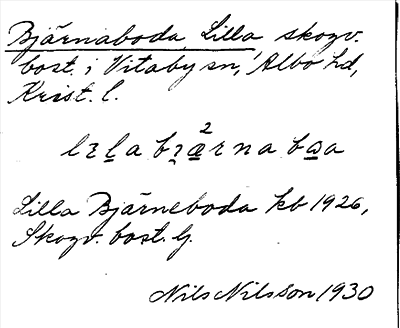 Bjärnaboda, Lilla, skogv.
bost. i Vitaby sn, Albo hd,
Krist. l.
2
Lilla Bjärneboda kb 1926,
Skogv. bost. Lj.
Nils Nilsson 1930